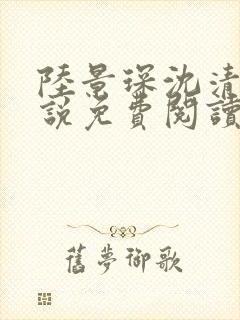 陸景琛沈清
說免費閱讀
舊夢御歌